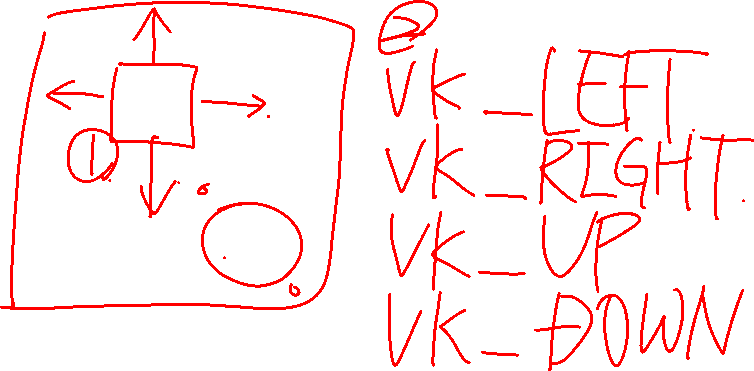 ①
②
VK_LEFT
VK_RIGHT
VK_UP
VK_DOWN